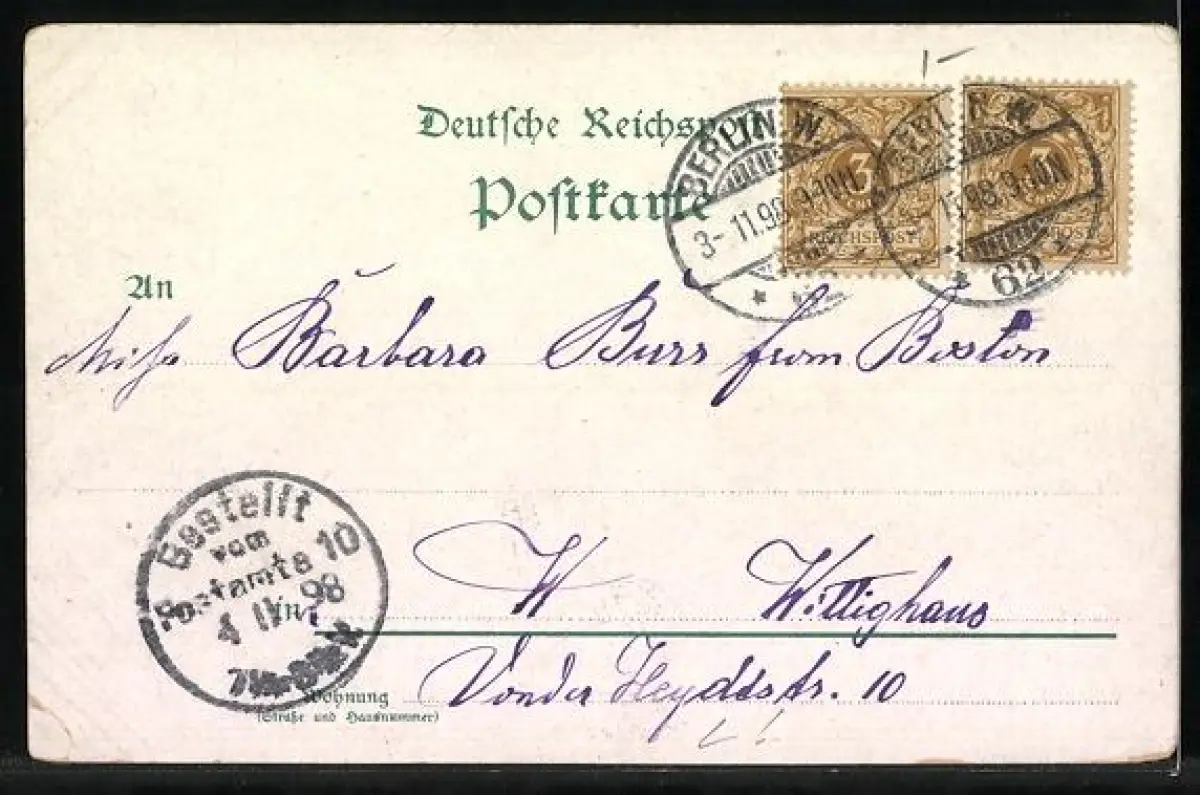 Deutsche Reichspost
Postkarte
BERLIN W.
3- 11.98.9-10N
3
REICHSPOST
BERLIN W
11.98.9-10N
* 62
An
Miss Barbara Burr from Boston
Bestellt
vom
Postamte 10
4 11 98
in
W Wittighaus
Wohnung
(Straße und Hausnummer)
Von der Heydtstr. 10